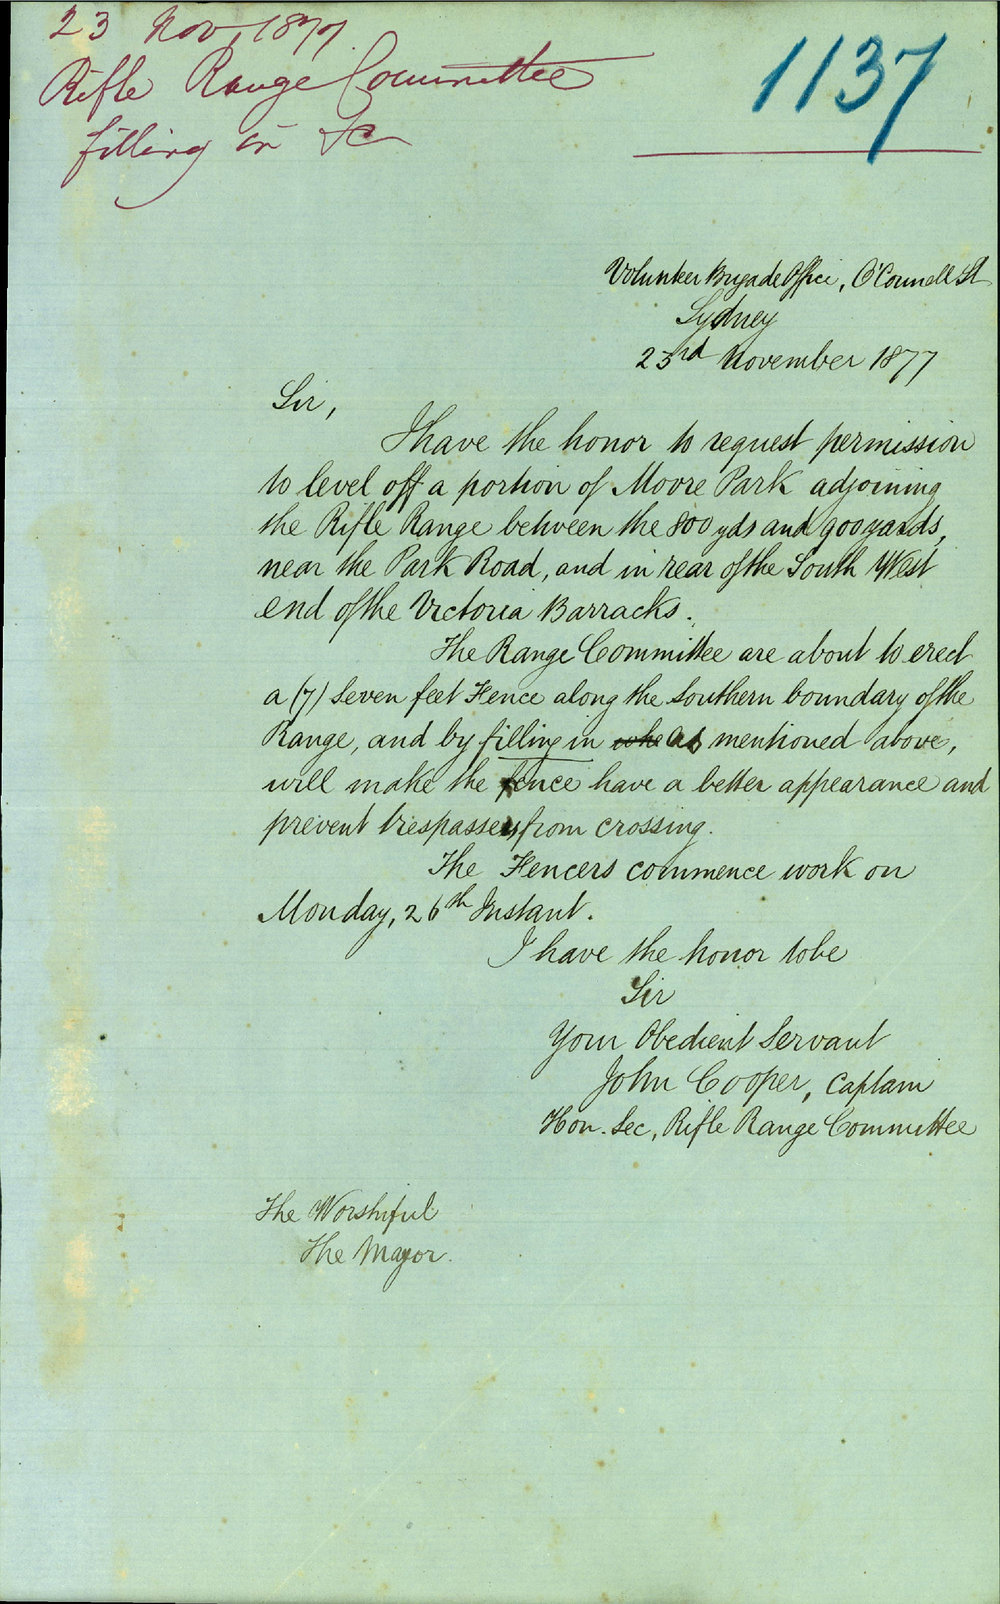 23 Nov, 1877
Rifle Range Committee
filling in &c
1137
Volunteer Brigade Office, O'Connell St
Sydney
23rd November 1877
Sir,
I have the honor to request permission
to level off a portion of Moore Park adjoining
the Rifle Range between the 800 yds and 900 yards,
near the Park Road, and in rear of the South West
end of the Victoria Barracks.
The Range Committee are about to erect
a (7) Seven feet Fence along the Southern boundary of the
Range, and by filling in as mentioned above,
will make the fence have a better appearance and
prevent trespassers from crossing.
The Fencers commence work on
Monday, 26th Instant.
I have the honor to be
Sir
Your Obedient Servant
John Cooper, Captain
Hon. Sec, Rifle Range Committee
The Worshiful
The Mayor.